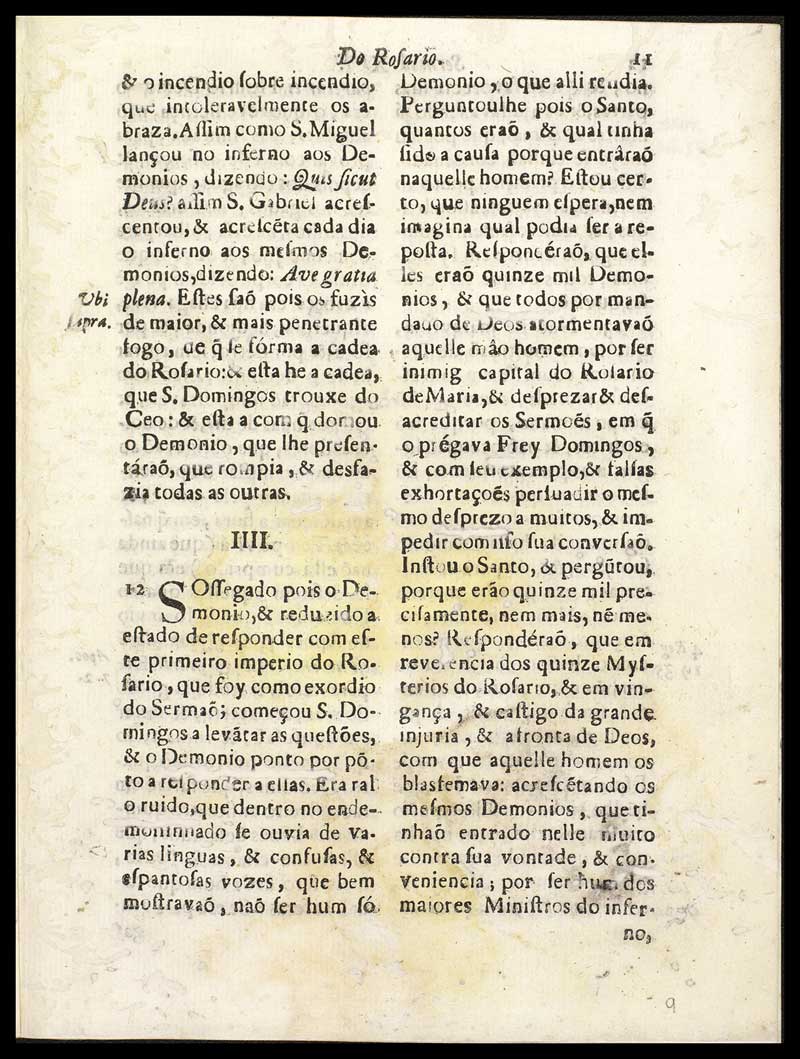 Do Roſario. 11
& o incendio ſobre incendio,
que intoleravelmente os a-
braza. Aſſim como S. Miguel
lançou no inferno aos De-
monios, dizendo: Quis ſicut
Deus? aſſim S. Gabriel acreſ-
centou, & acreſcẽta cada dia
o inferno aos meſmos De-
monios, dizendo: Ave gratia
Ubi plena. Eſtes ſaõ pois os fuzis
ſupra. de maior, & mais penetrante
fogo, de q̃ ſe fórma a cadea
do Roſario: & eſta he a cadea,
que S. Domingos trouxe do
Ceo: & eſta a com q̃ domou
o Demonio, que lhe preſen-
táraõ, que rompia, & desfa-
zia todas as outras.
IIII.
12 SOſſegado pois o De-
monio, & reduzido a
eſtado de reſponder com eſ-
te primeiro imperio do Ro-
ſario, que foy como exordio
do Sermaõ; começou S. Do-
mingos a levãtar as queſtões,
& o Demonio ponto por põ-
to a reſponder a ellas. Era tal
o ruido, que dentro no ende-
moninhado ſe ouvia de va-
rias linguas, & confuſas, &
eſpantoſas vozes, que bem
moſtravaõ, naõ ſer hum ſó
Demonio, o que alli rendia.
Perguntoulhe pois o Santo,
quantos eraõ, & qual tinha
ſido a cauſa porque entrâraõ
naquelle homem? Eſtou cer-
to, que ninguem eſpera, nem
imagina qual podia ſer a re-
poſta. Reſpondéraõ, que el-
les eraõ quinze mil Demo-
nios, & que todos por man-
dado de Deos atormentavaõ
aquelle mâo homem, por ſer
inimig capital do Roſario
de Maria, & deſprezar & deſ-
acreditar os Sermoẽs, em q̃
o prégava Frey Domingos,
& com ſeu exemplo, & falſas
exhortaçoẽs perſuadir o meſ-
mo deſprezo a muitos, & im-
pedir com iſſo ſua converſaõ.
Inſtou o Santo, & pergũtou,
porque erão quinze mil pre-
ciſamente, nem mais, nẽ me-
nos? Reſpondéraõ, que em
reverencia dos quinze Myſ-
terios do Roſario, & em vin-
gança, & caſtigo da grande
injuria, & afronta de Deos,
com que aquelle homem os
blasfemava: acreſcẽtando os
meſmos Demonios, que ti-
nhaõ entrado nelle muito
contra ſua vontade, & con-
veniencia; por ſer hum dos
maiores Miniſtros do infer-
no,
9